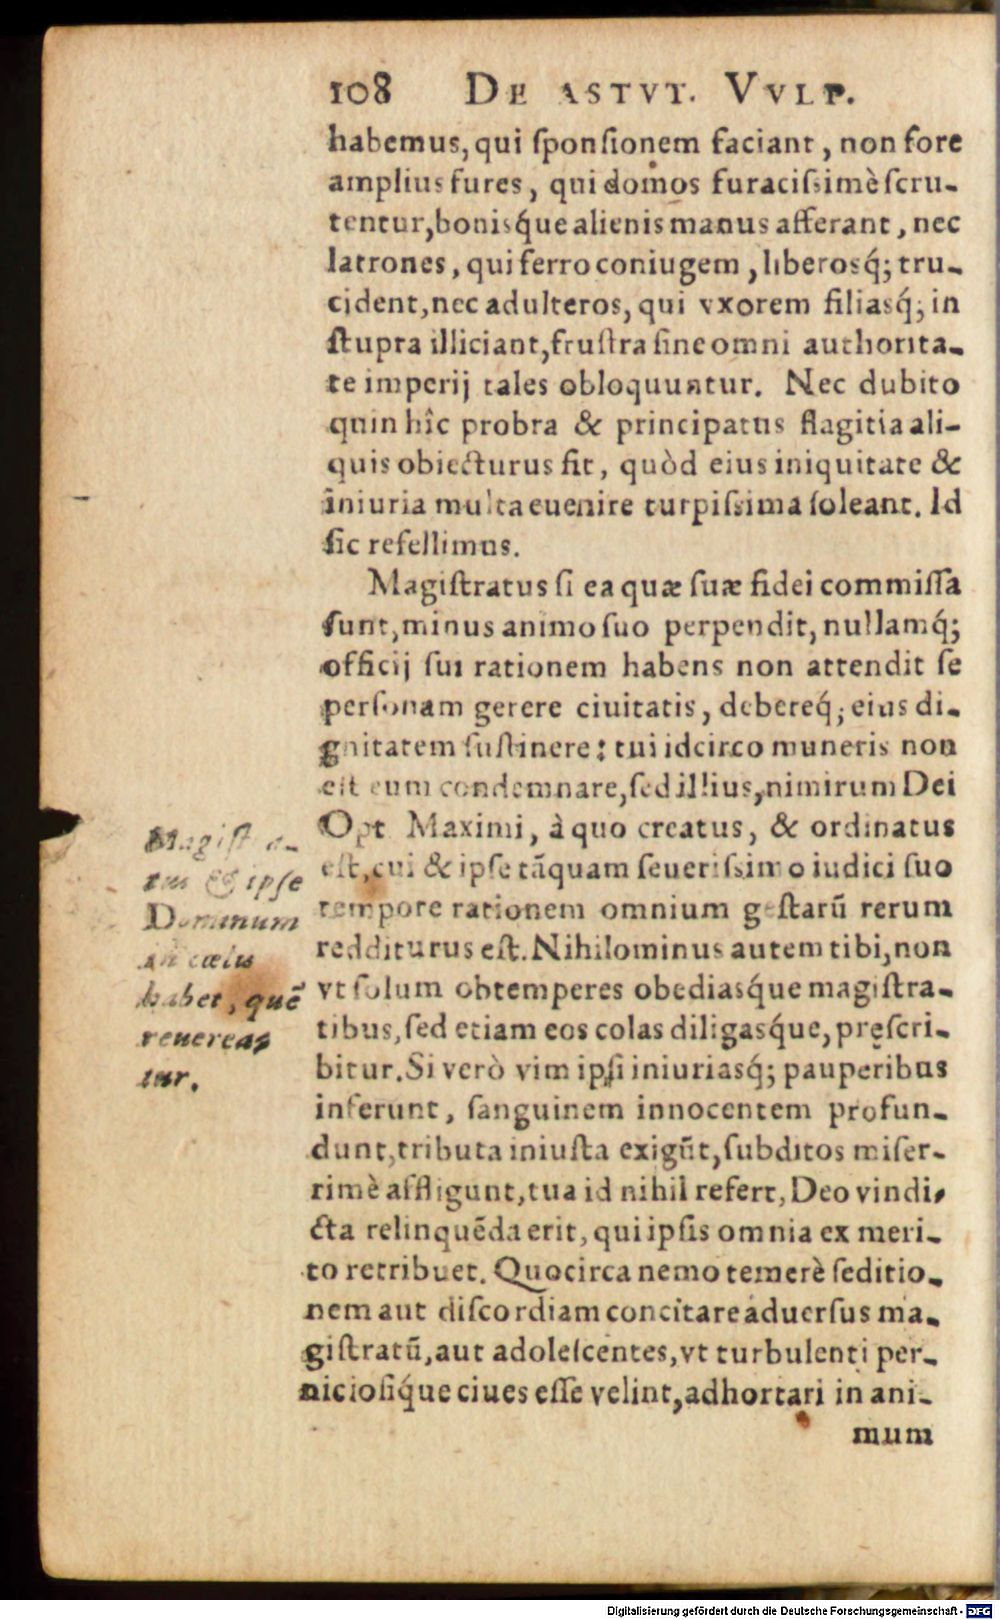 108 DE ASTVT. VVLP.
habemus, qui ſponſionem faciant, non fore
amplius fures, qui domos furaciſsimè ſcru-
tentur, bonisq́ue alienis manus afferant, nec
latrones, qui ferro coniugem, liberosq́; tru-
cident, nec adulteros, qui vxorem filiasq́; in
ſtupra illiciant, fruſtra ſine omni authorita-
te imperij tales obloquuntur. Nec dubito
quin hîc probra & principatus flagitia ali-
quis obiecturus ſit, quòd eius iniquitate &
iniuria multa euenire turpiſsima ſoleant. Id
ſic refellimus.
Magiſtratus ſi ea quæ ſuæ fidei commiſſa
ſunt, minus animo ſuo perpendit, nullamq́;
officij ſui rationem habens non attendit ſe
perſonam gerere ciuitatis, debereq́; eius di-
gnitatem ſuſtinere: tui idcirco muneris non
eſt eum condemnare, ſed illius, nimirum Dei
Opt. Maximi, à quo creatus, & ordinatus
eſt, cui & ipſe tãquam ſeueriſsimo iudici ſuo
tempore rationem omnium geſtarũ rerum
redditurus eſt. Nihilominus autem tibi, non
vt ſolum obtemperes obediasq́ue magiſtra-
tibus, ſed etiam eos colas diligasq́ue, pręſcri-
bitur. Si verò vim ipſi iniuriasq́; pauperibus
inferunt, ſanguinem innocentem profun-
dunt, tributa iniuſta exigũt, ſubditos miſer-
rimè affligunt, tua id nihil refert, Deo vindi-
cta relinquẽda erit, qui ipſis omnia ex meri-
to retribuet. Quocirca nemo temerè ſeditio-
nem aut diſcordiam concitare aduerſus ma-
giſtratũ, aut adoleſcentes, vt turbulenti per-
nicioſiq́ue ciues eſſe velint, adhortari in ani-
mum
Magiſtra-
tus & ipſe
Dominum
in cœlis
habet, quẽ
reuerea-
tur.
Digitalisierung gefördert durch die Deutsche Forschungsgemeinschaft - DFG